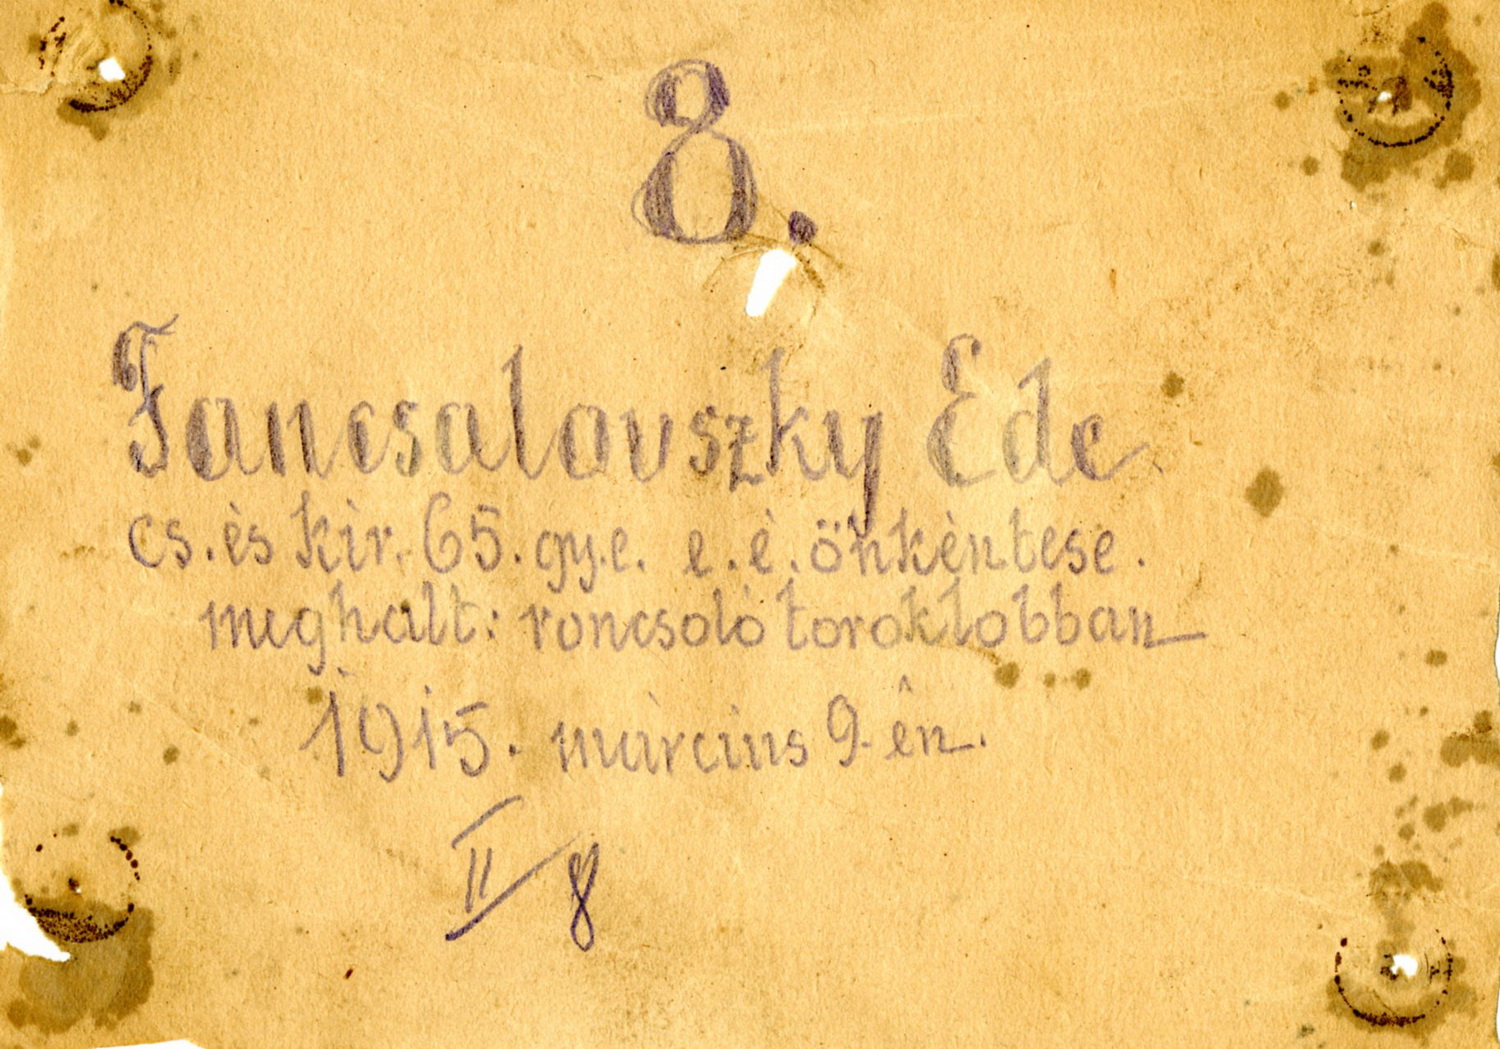 8.
Jancsalovszky Ede
cs. és kir. 65. gy. e. e. é. önkéntese.
meghalt: roncsoló toroklobban
1915. március 9-én.
II/8